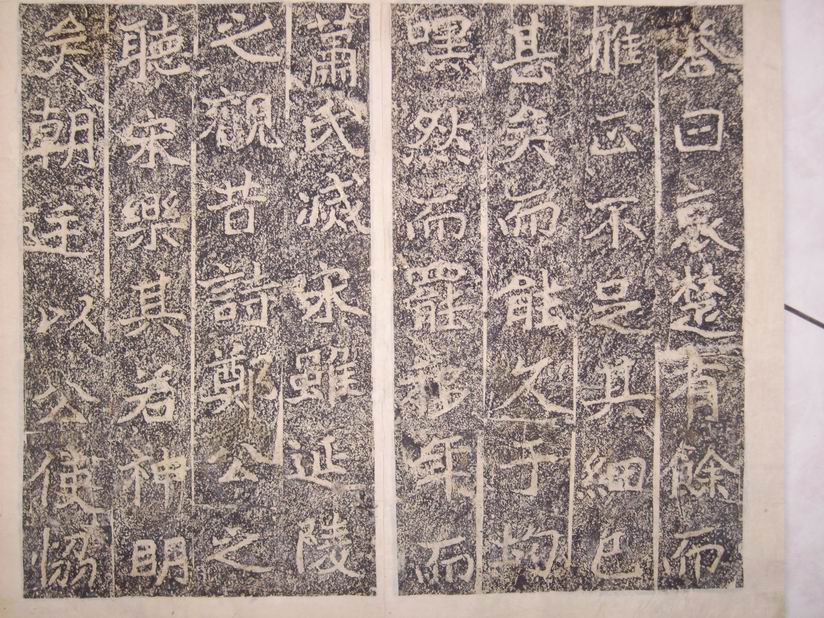 答曰哀楚有餘而
雅正不足其細已
甚矣而能久于均
嘿然而罷移年而
蕭氏滅宋雖延陵
之觀昔詩鄭公之
聽宋樂其若神明
矣朝廷以公使協